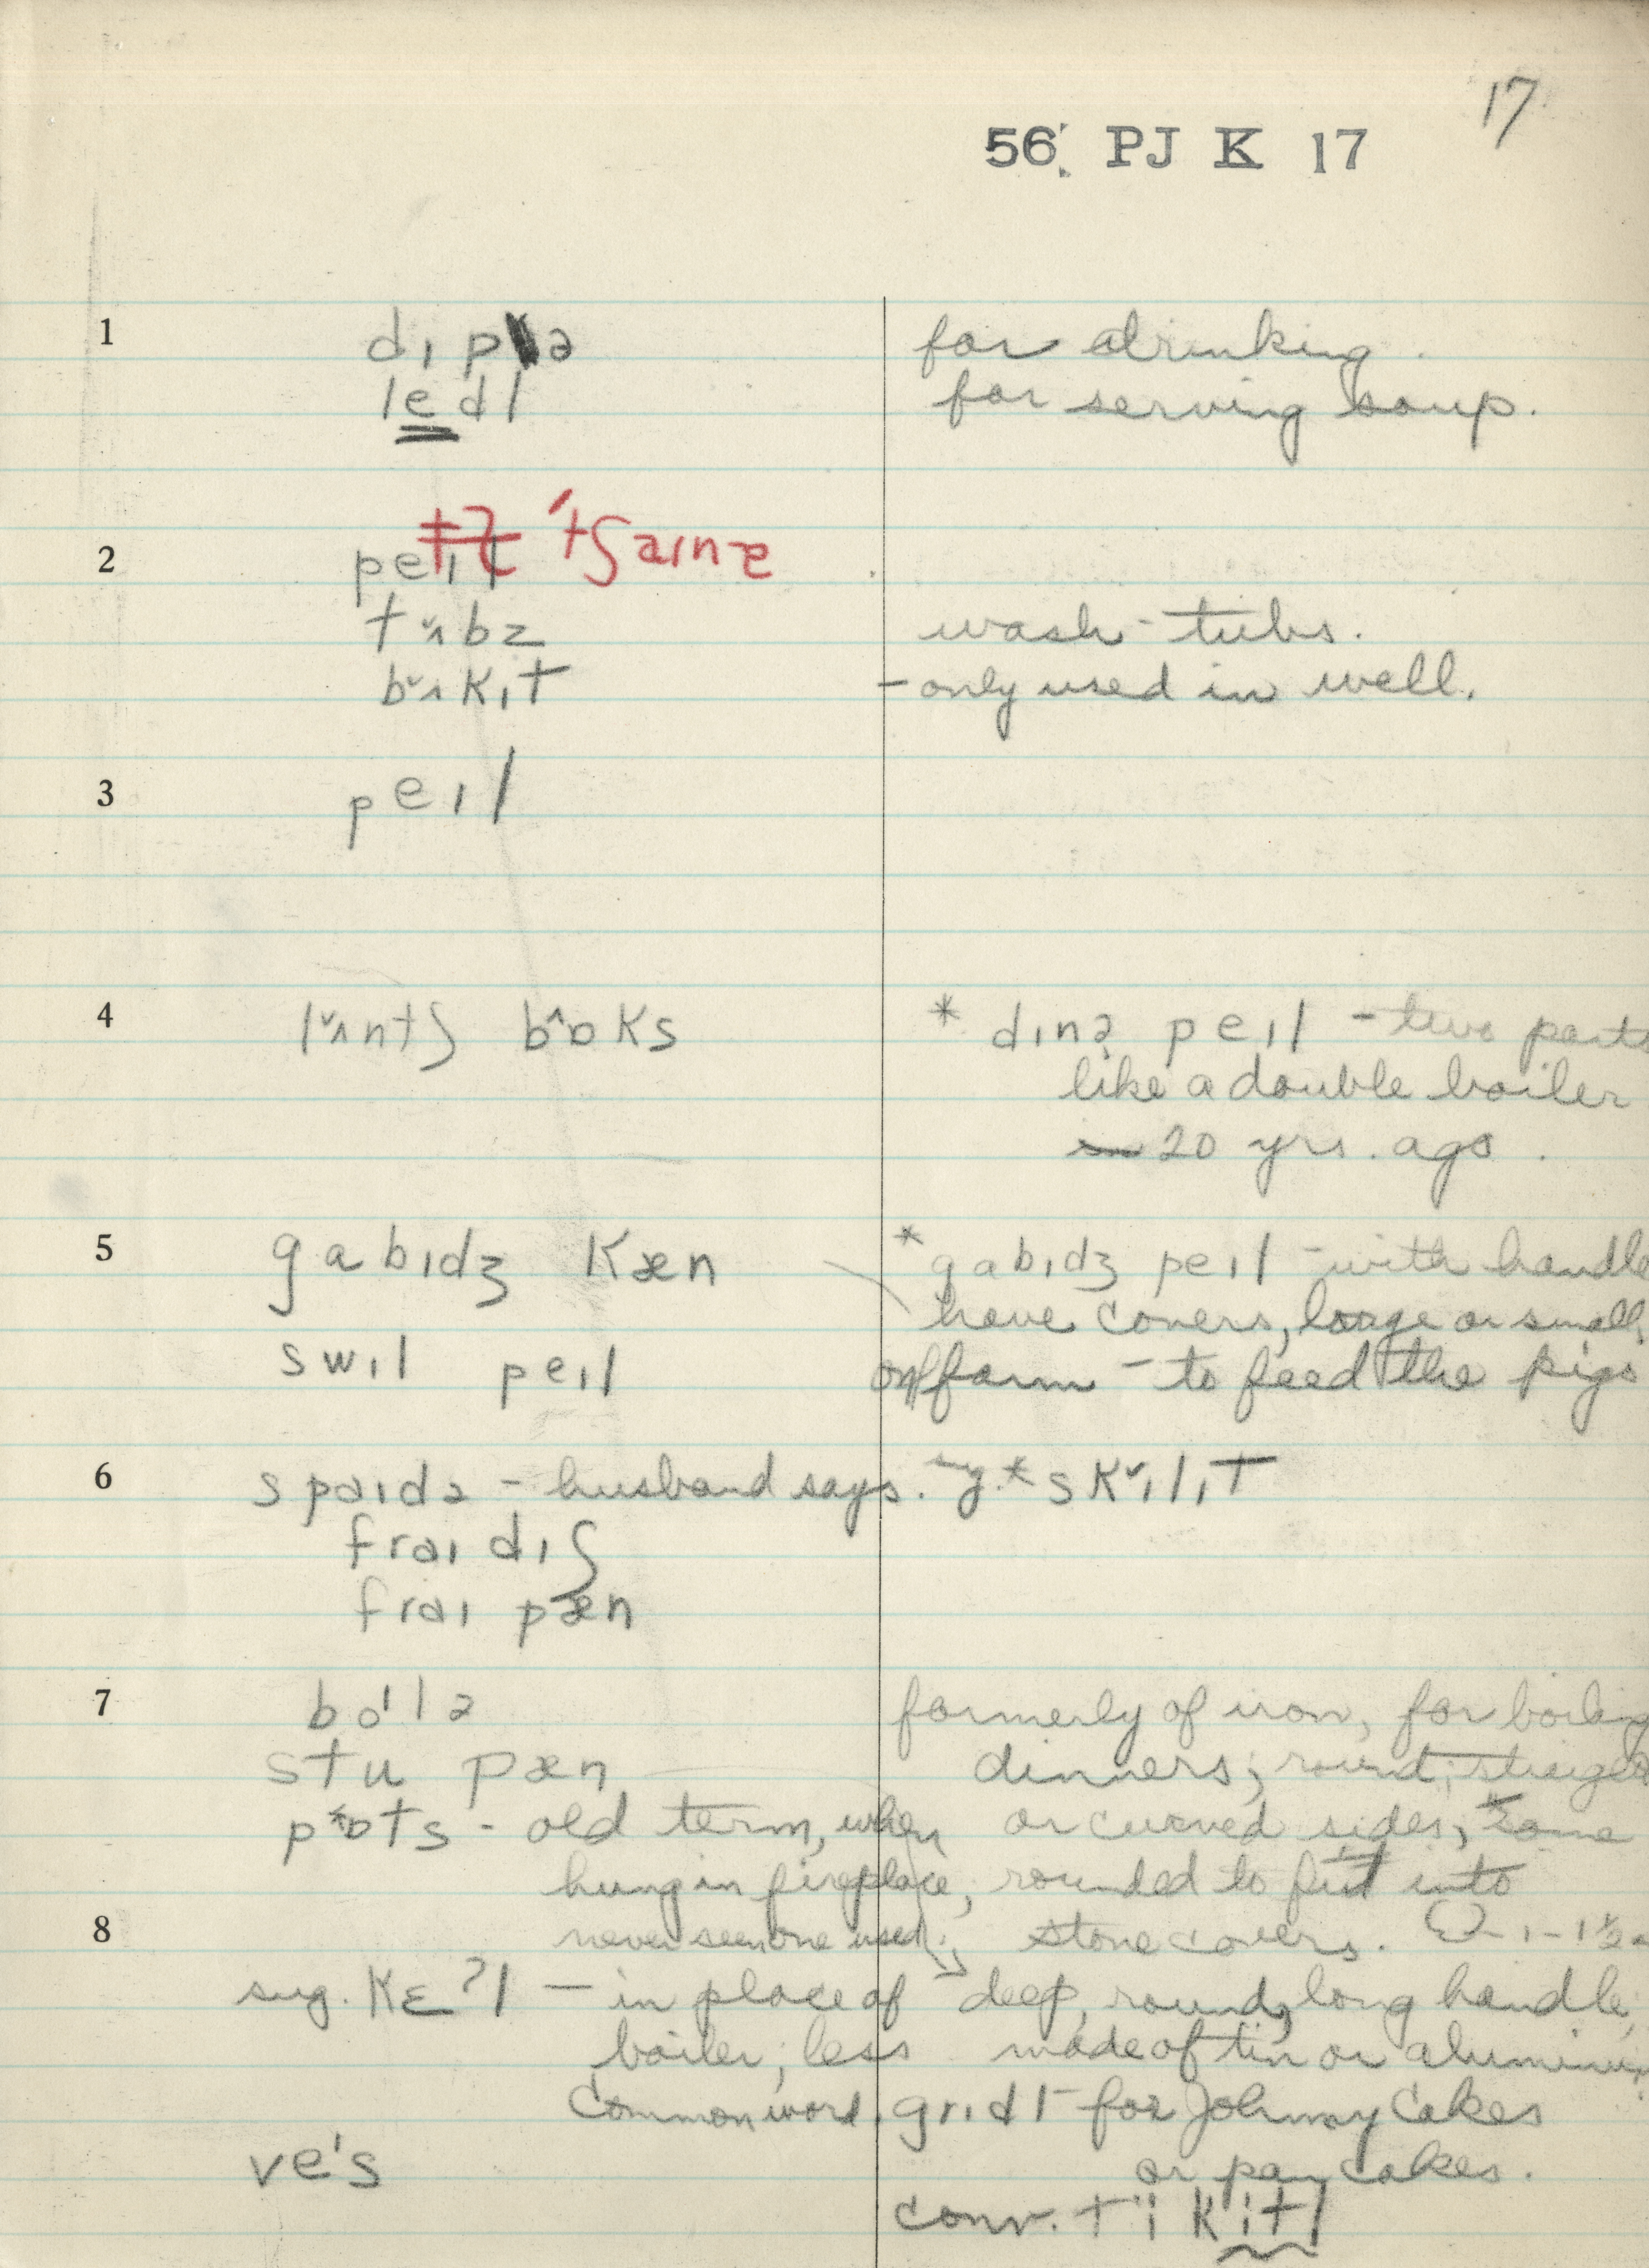 17
56. PJ K 17
1 dɪpə for drinking.
ledl for serving soup.
'tʃaɪnə
2 peɪl
tˇʌbz wash-tubs.
bˇʌkɪt - only used in well.
3 peɪl
4 lˇʌntʃ bˆɒks * dɪnə peɪl - two parts
like a double boiler
20 yrs. ago.
5 gabɪdʒ kæn * gabɪdʒ peɪl - with handle
have covers, large or small,
swɪl peɪl on farm - to feed the pigs
6 spaɪdə - husband says. sug.* skˇɪlɪt
fraɪ dɪʃ
fraɪ pæn
7 boˈlə formerly of iron, for boiling
stu pæn dinners; round;
pˆɒts - old term, when or curved sides, some
hung in fireplace, rounded to fit into
8 never seen one used. stone covers. 1-1½
sug. kɛʔl - in place of deep, round, long handle,
boiler; less made of tin or
common word. grɪdl - for Johnny Cakes
veˈs or pan cakes.
conv. ti kɪtl